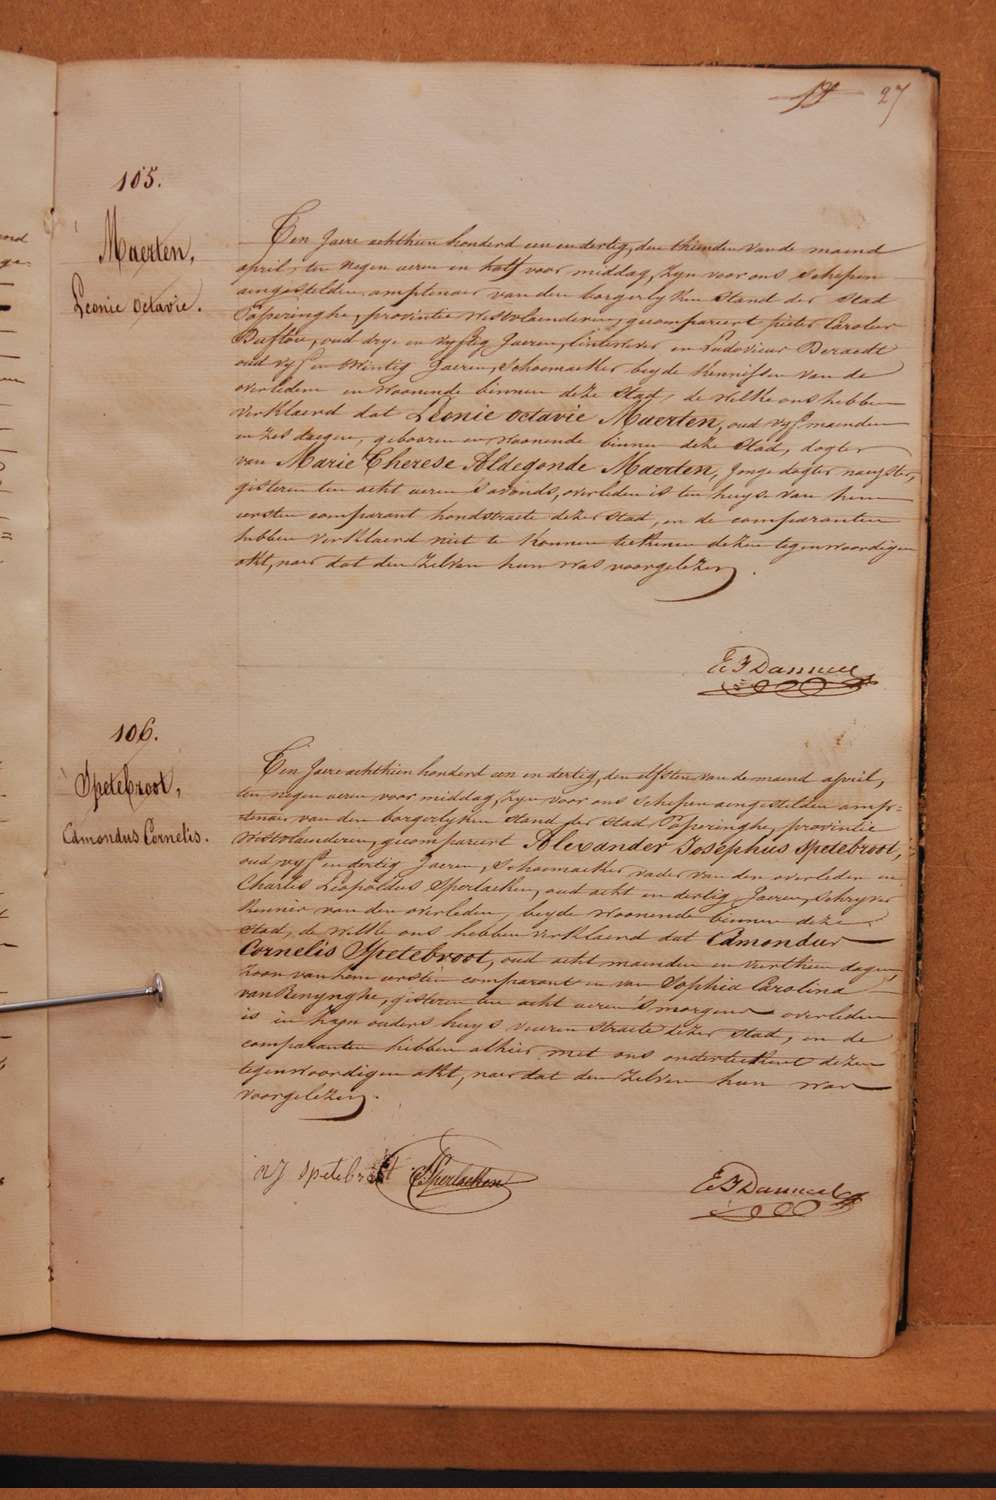 27
105.
Maerten,
Leonie Octavie.
Ten Jaere achthien honderd een en dertig, den thienden van de maend
april, ten negen ueren en half voor middag, zyn voor ons schepen
aengestelden amptenaer van den borgerlyken stand der stad
Poperinghe, provintie westvlaenderen, gecompareert pieter Carolus
oud drye en vyftig Jaeren, en Ludovicus Deraedt
oud vyf en twintig Jaeren, schoemaeker beyde kennissen van de
overledene en woonende binnen deze stad, de welke ons hebben
verklaerd dat Leonie Octavie Maerten, oud vyf maenden
en zes daegen, gebooren en woonende binnen deze stad, dogter
van Marie Therese Aldegonde Maerten, Jonge dogter naeyster,
gisteren ten acht ueren s'avonds, overleden is ten huyse van hem
eersten comparant hondstraete dezer stad, en de comparanten
hebben verklaerd niet te konnen teekenen dezen tegenwoordigen
akt, naer dat den zelven hun was voorgelezen.
E F Danneel
106.
Spetebroot,
Edmondus Cornelis.
Ten Jaere achthien honderd een en dertig, den elfsten van de maend april,
ten negen ueren voor middag, zyn voor ons schepen aengestelden amp-
tenaer van den borgerlyken stand der stad Poperinghe, provintie
westvlaenderen, gecompareert Alexander Josephus Spetebroot,
oud vyf en dertig Jaeren, schoemaeker vader van den overleden en
Charles Leopoldus Sperlaeken, oud acht en dertig Jaeren, schryver
kennis van den overleden, beyde woonende binnen deze
stad, de welke ons hebben verklaerd dat Edmondus
Cornelis Spetebroot, oud acht maenden en vierthien dagen
zoon van hem eersten comparant en van Sophia Carolina
van Renynghe, gisteren ten acht ueren 's morgens overleden
is in zyn ouders huys veuren straete dezer stad, en de
comparanten hebben alhier met ons onderteekent dezen
tegenwoordigen akt, naer dat den zelven hun was
voorgelezen.
aJ spetebroot C Sperlaeken E F Danneel